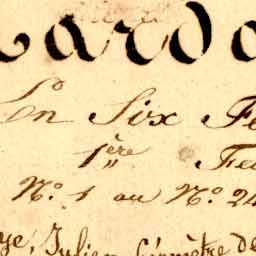 ardo
En Six Fe
1ère Feu
N.° 1 au N.° 24
ye, Julien Géomètre de